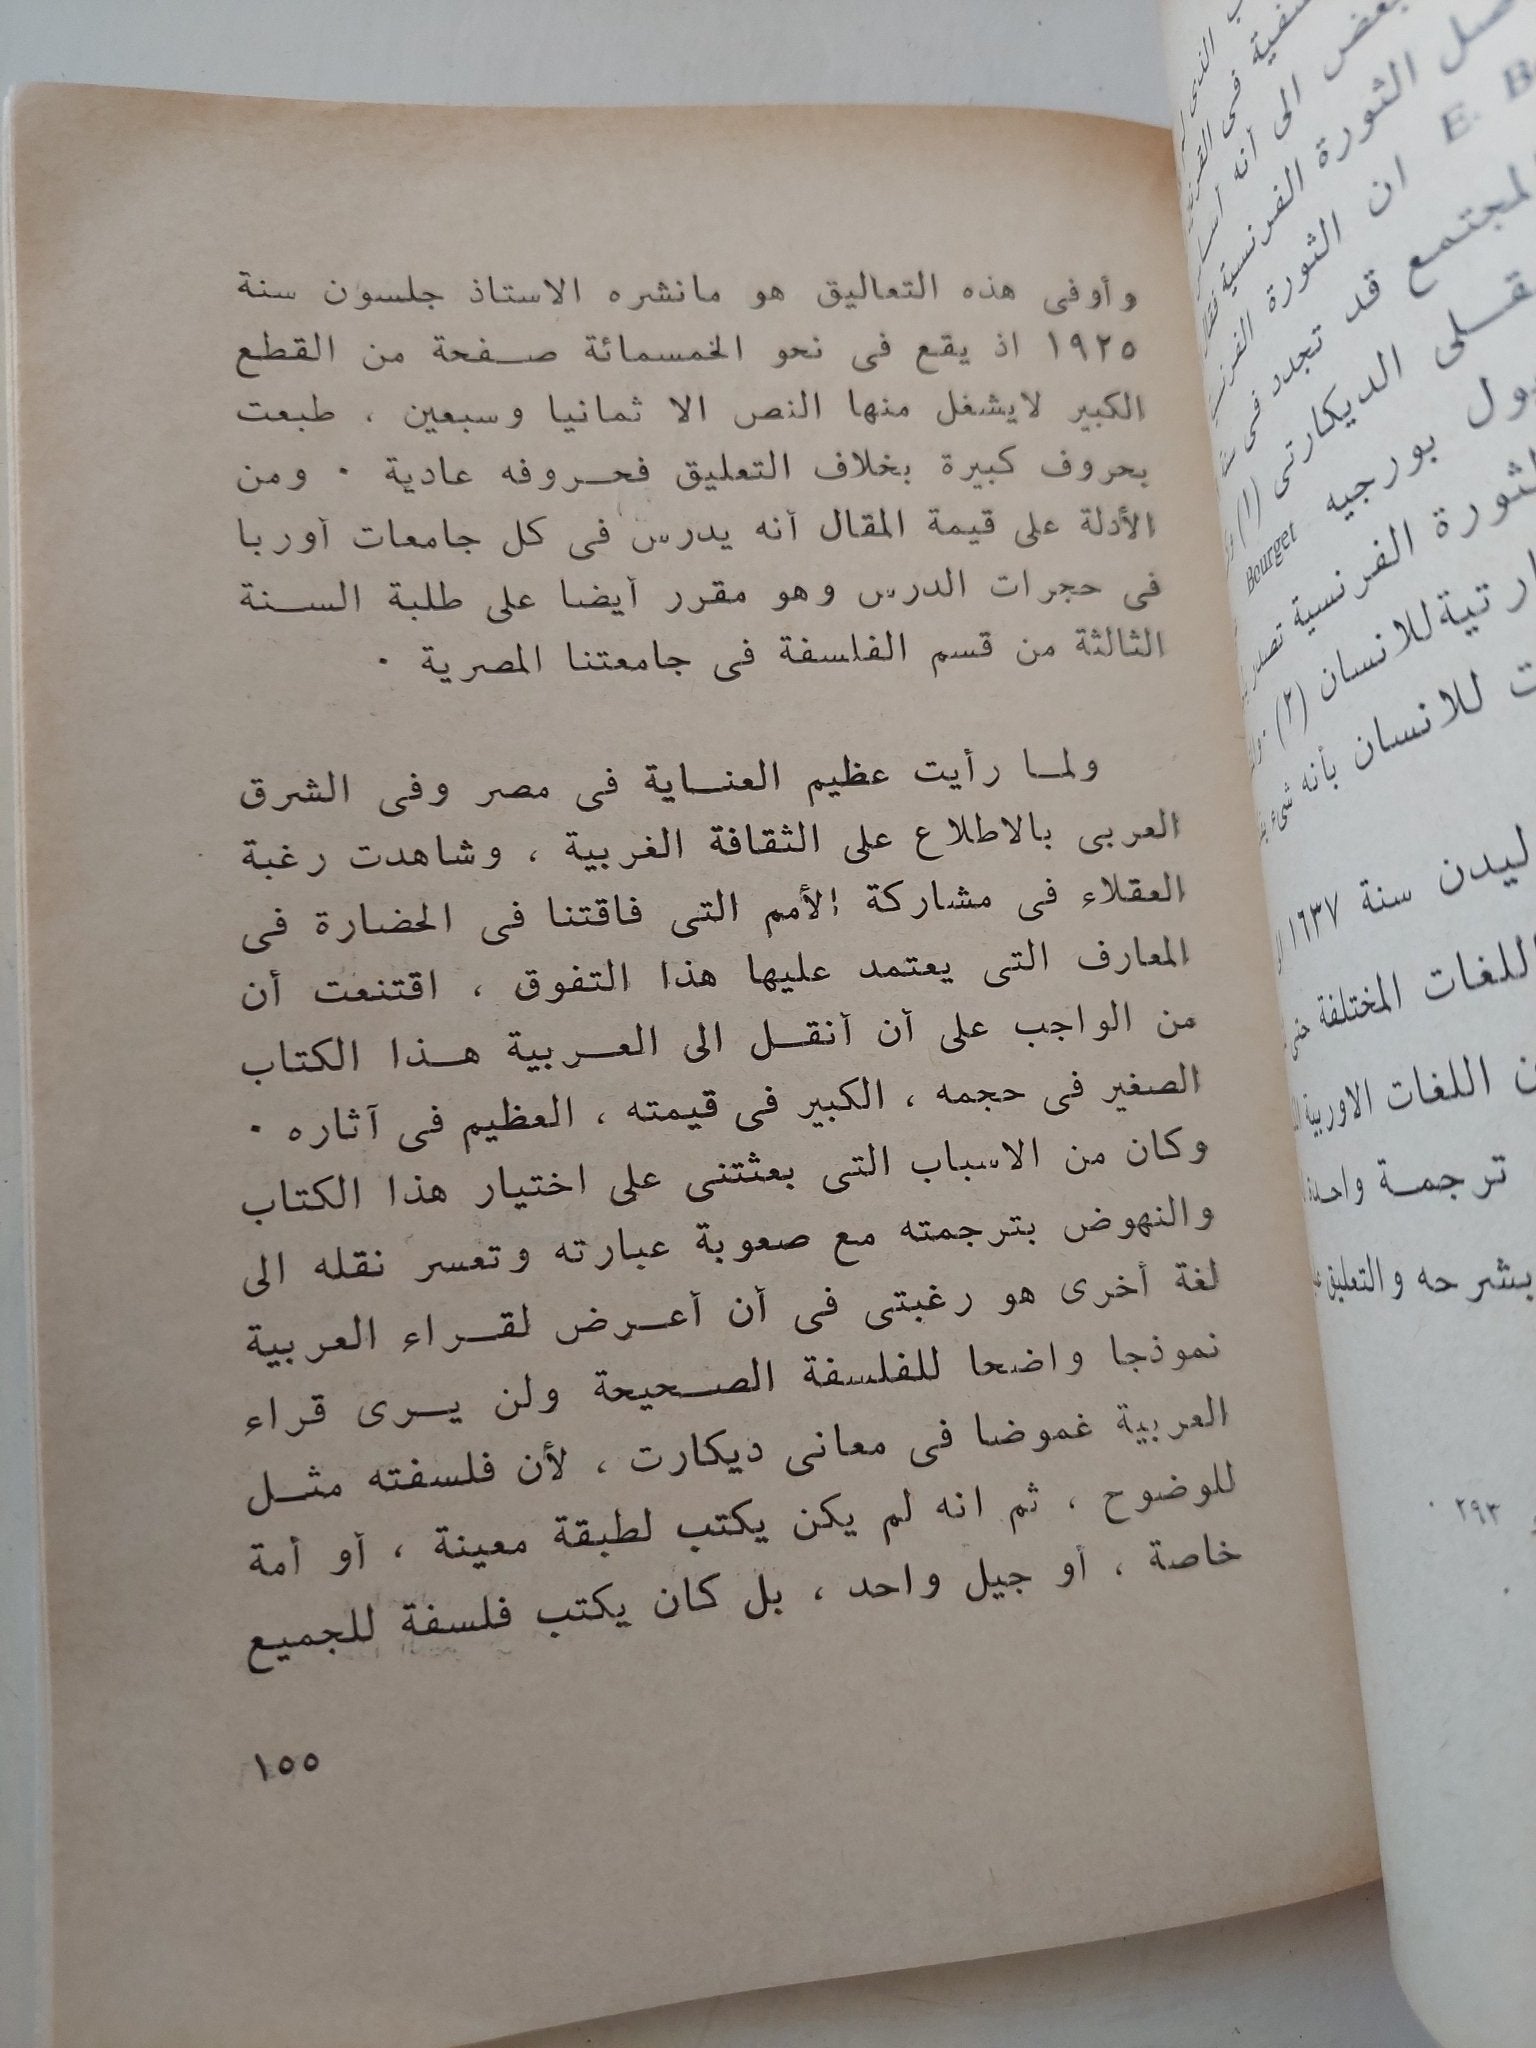 وأوفى هذه التعاليق هو مانشره الاستاذ جلسون سنة
١٩٢٥ اذ يقع فى نحو الخمسمائة صفحة من القطع
الكبير لايشغل منها النص الا ثمانيا وسبعين ، طبعت
بحروف كبيرة بخلاف التعليق فحروفه عادية ٠ ومن
الأدلة على قيمة المقال أنه يدرس فى كل جامعات أوربا
فى حجرات الدرس وهو مقرر أيضا على طلبة السنة
الثالثة من قسم الفلسفة فى جامعتنا المصرية ٠
ولما رأيت عظيم العناية فى مصر وفى الشرق
العربى بالاطلاع على الثقافة الغربية ، وشاهدت رغبة
العقلاء فى مشاركة الأمم التى فاقتنا فى الحضارة فى
المعارف التى يعتمد عليها هذا التفوق ، اقتنعت أن
من الواجب على أن أنقل الى العربية هذا الكتاب
الصغير فى حجمه ، الكبير فى قيمته ، العظيم فى آثاره ٠
وكان من الاسباب التى بعثتنى على اختيار هذا الكتاب
والنهوض بترجمته مع صعوبة عبارته وتعسر نقله الى
لغة أخرى هو رغبتى فى أن أعرض لقراء العربية
نموذجا واضحا للفلسفة الصحيحة ولن يرى قراء
العربية غموضا فى معانى ديكارت ، لأن فلسفته مثل
للوضوح ، ثم انه لم يكن يكتب لطبقة معينة ، أو أمة
خاصة ، أو جيل واحد ، بل كان يكتب فلسفة للجميع
١٥٥
الذى
فى
بعض الى أنه
الثورة الفرنسية
E.
ان الثورة
المجتمع قد تجدد فى
الديكارتى (١)
بورجيه Bourget
الثورة الفرنسية
للانسان (٢)
للانسان بأنه شىء
ليدن سنة ١٦٣٧
اللغات المختلفة
اللغات الاوربية
ترجمة واحدة
بشرحه والتعليق
٢٩٣ ٠